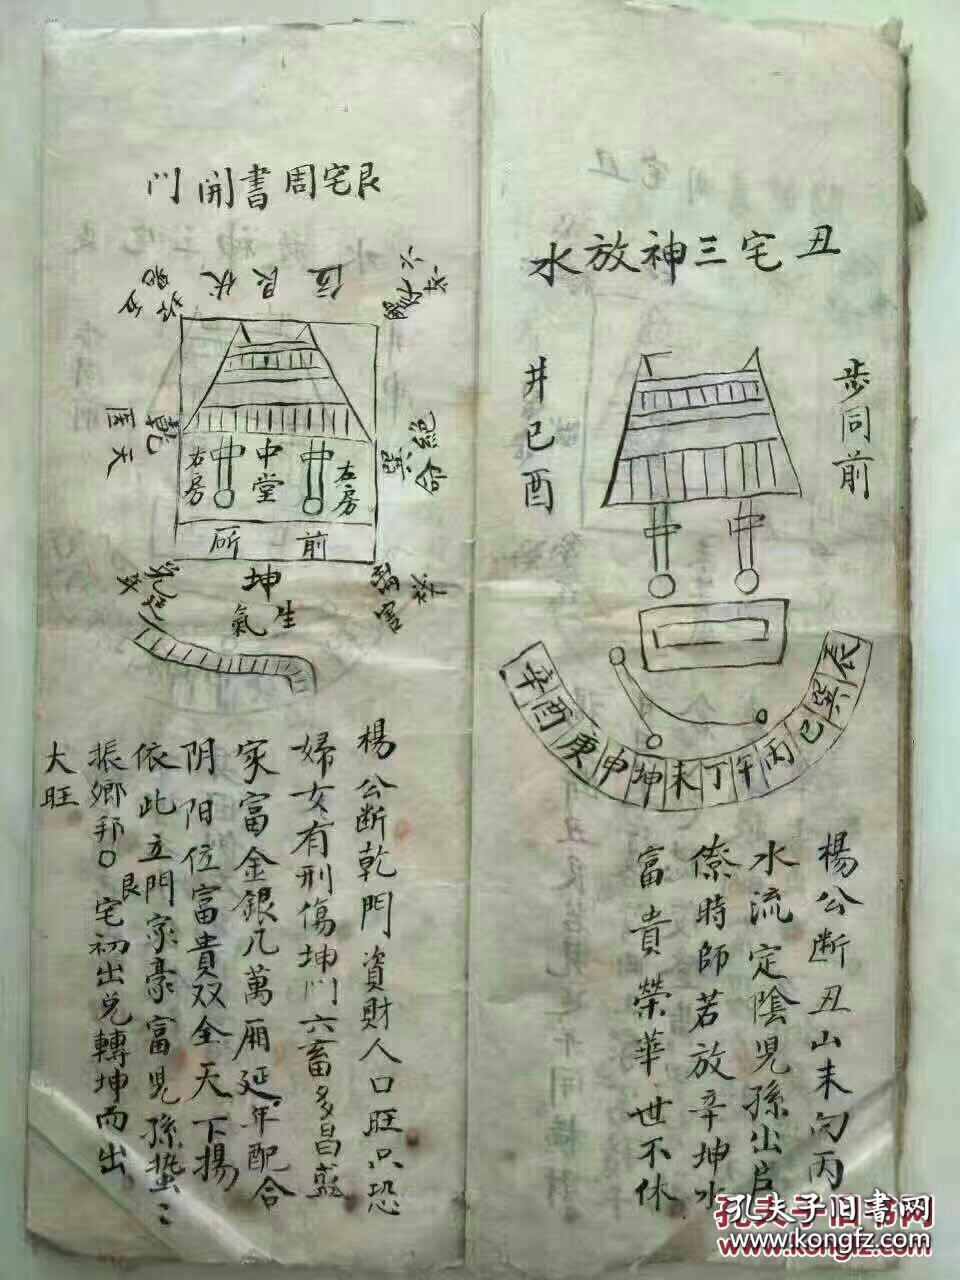 丑宅三神放水
步同前
井巳酉
辛酉庚申坤未丁午丙巳巽
楊公断丑山未向丙
水流定陰児孫出启
僚時師若放辛坤水
富貴榮華世不休
艮宅周書開門
位艮伏
六煞
五鬼
絕命
巽
乾
天医
右房
中堂
左房
所前
坤
生氣
兌延年
禍害
楊公断乾門資財人口旺只恐
婦女有刑傷坤门六畜多昌盛
家富金銀几萬廂延年配合
阴阳位富貴双全天下揚
依此立門家豪富児孫蛰〻
振鄉邦〇艮宅初出兌轉坤而出
大旺
孔夫子旧书网
www.kongfz.com